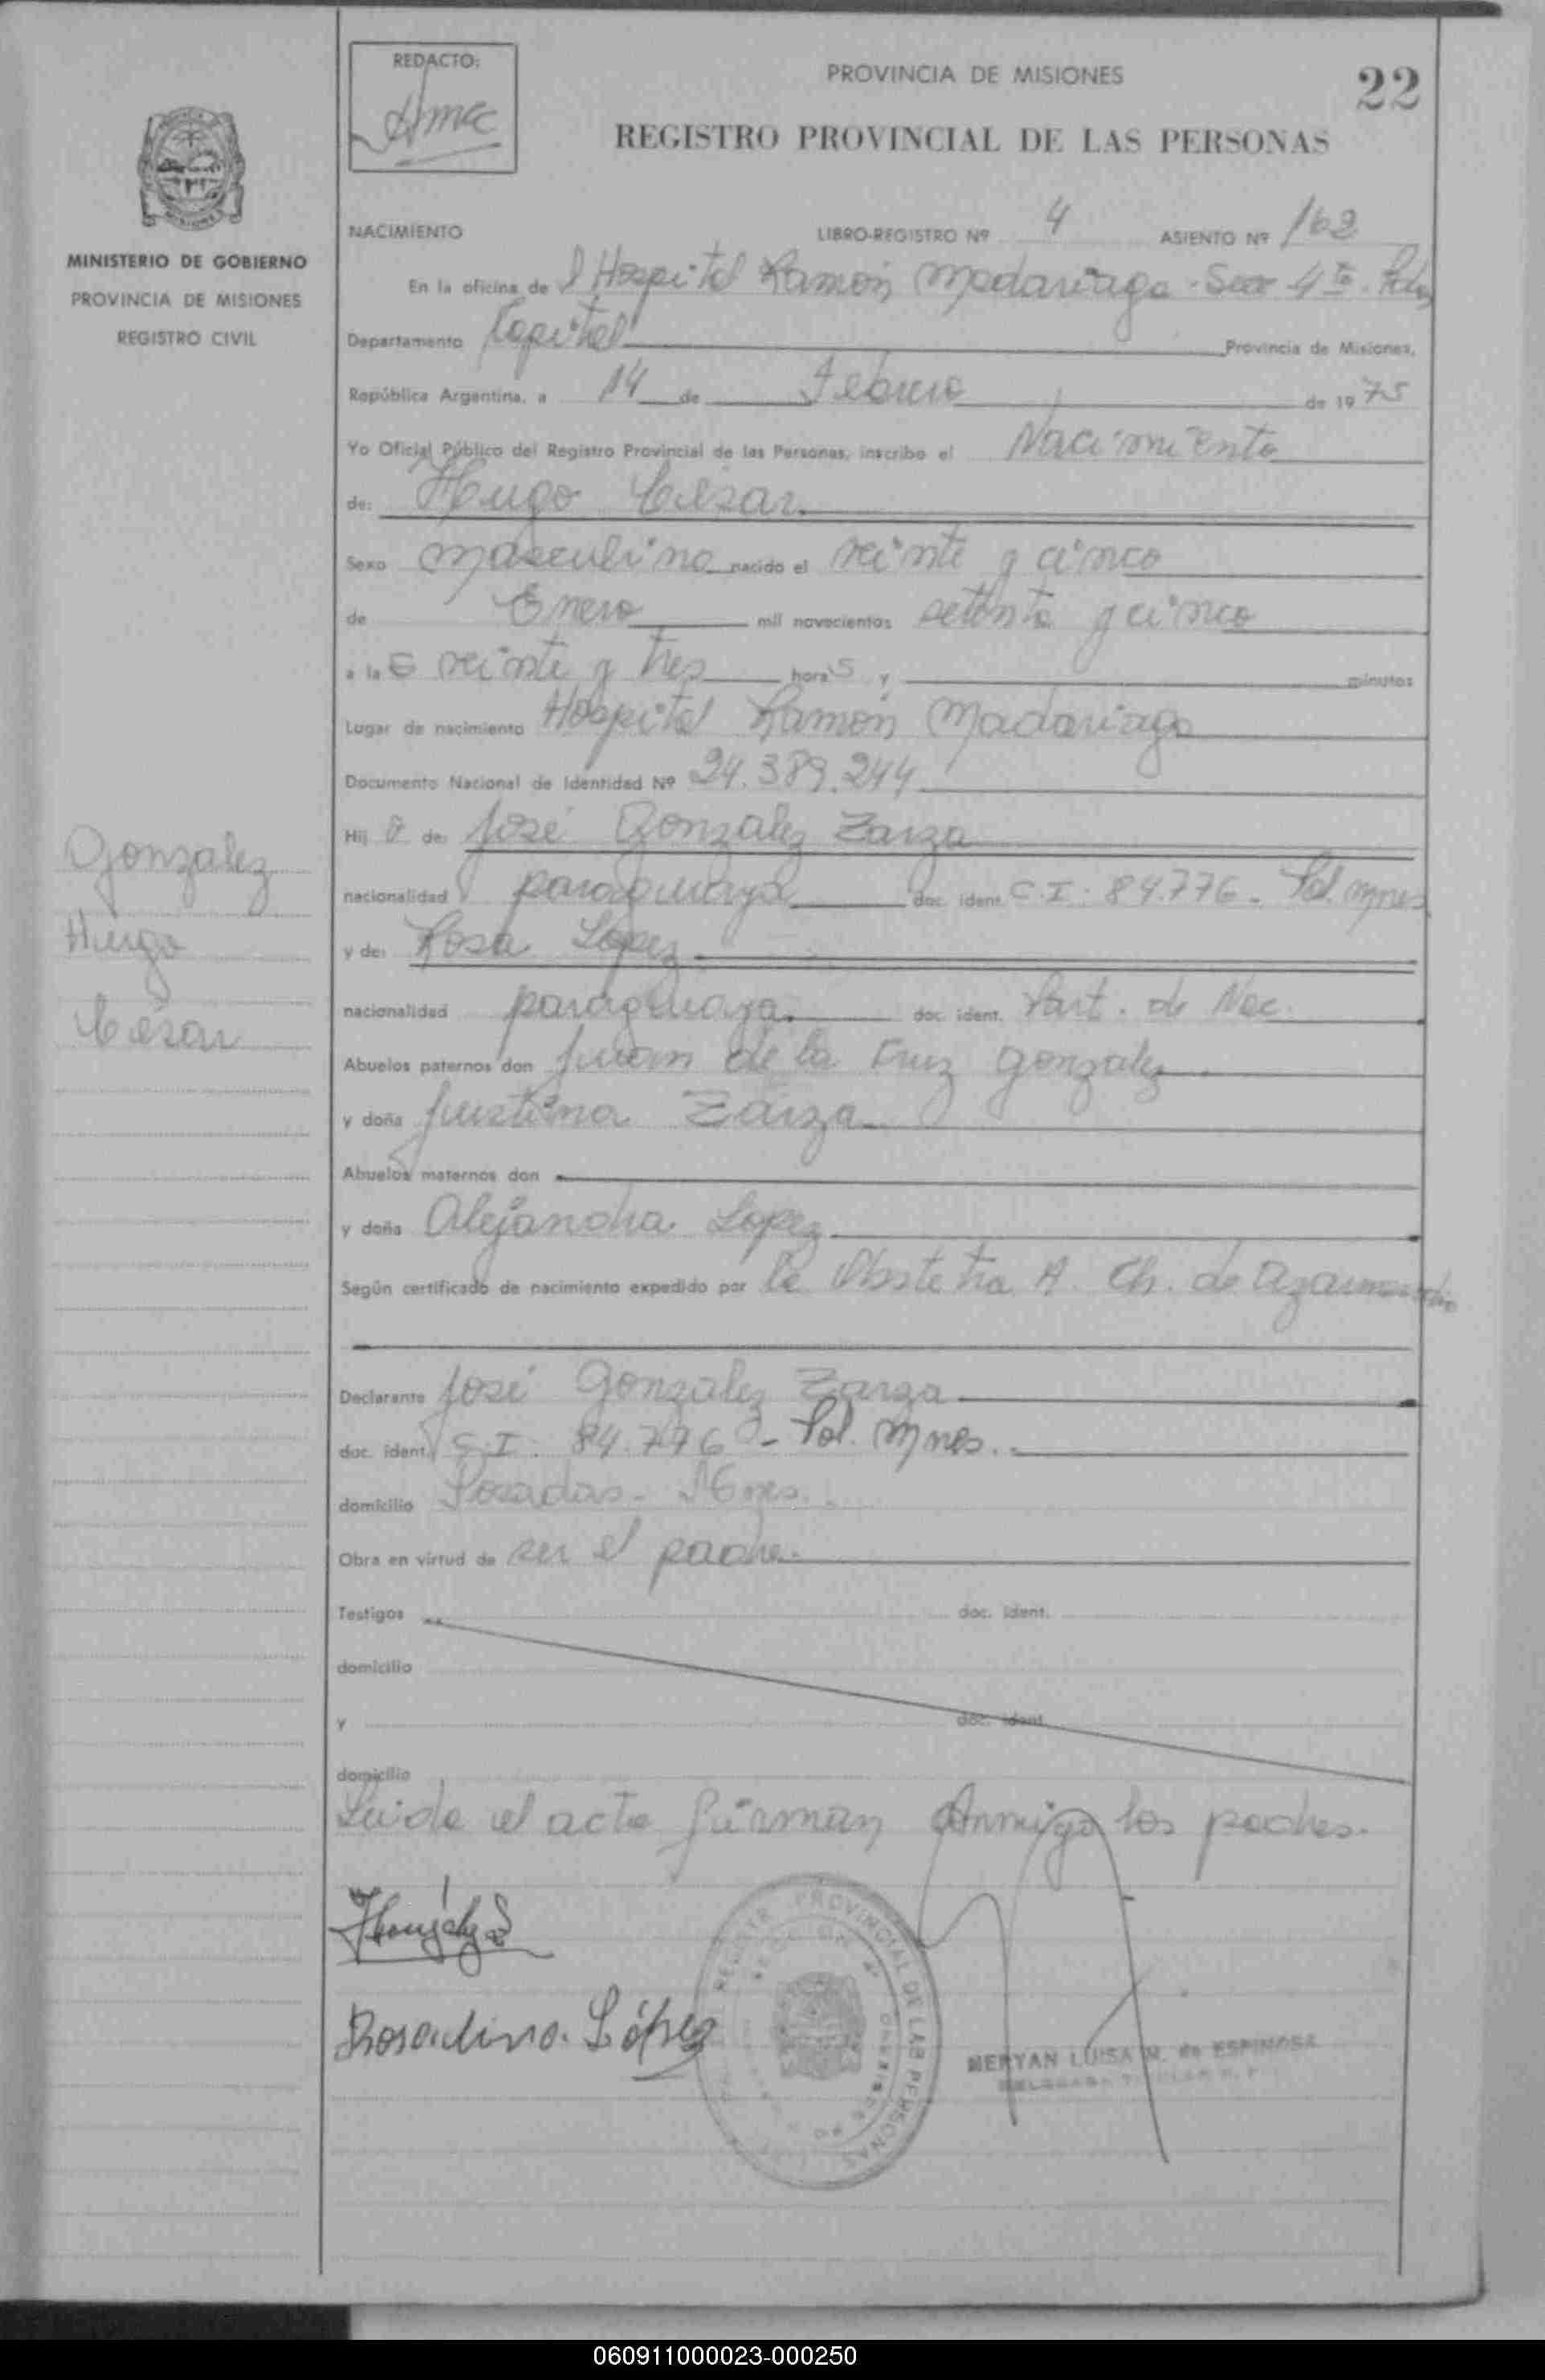 REDACTO:
PROVINCIA DE MISIONES
22
REGISTRO PROVINCIAL DE LAS PERSONAS
MINISTERIO DE GOBIERNO
PROVINCIA DE MISIONES
REGISTRO CIVIL
NACIMIENTO LIBRO-REGISTRO Nº 4 ASIENTO Nº 162
En la oficina de l Hospital Ramón Madariaga - Secc 4ta.
Departamento Capital Provincia de Misiones,
República Argentina, a 14 de Febrero de 1975
Yo Oficial Público del Registro Provincial de las Personas, inscribo el Nacimiento
de: Hugo César
Sexo masculino nacido el veinte y cinco
de Enero mil novecientos setenta y cinco
a las veinte y tres horas y minutos
Lugar de nacimiento Hospital Ramón Madariaga
Documento Nacional de Identidad Nº 24.389.244
Hijo de José Gonzalez Zarza
nacionalidad paraguaya doc. ident. C.I. 84.776 - Pol. Mnes
y de: Rosa Lopez
nacionalidad paraguaya doc. ident. Part. de Nac.
Abuelos paternos don Juan de la Cruz Gonzalez
y doña Justina Zarza
Abuelos maternos don
y doña Alejandra Lopez
Según certificado de nacimiento expedido por la Obstetra A. Ch. de
Declarante José Gonzalez Zarza
doc. ident. C.I. 84.776 - Pol. Mnes.
domicilio Posadas - Mnes.
Obra en virtud de ser el padre.
Testigos doc. ident.
domicilio
y doc. ident.
domicilio
Leida el acta firman conmigo los padres.
Gonzalez
Hugo
César
Rosalina López
REGISTRO PROVINCIAL DE LAS PERSONAS
MERYAN LUISA M. de ESPINOSA
060911000023-000250